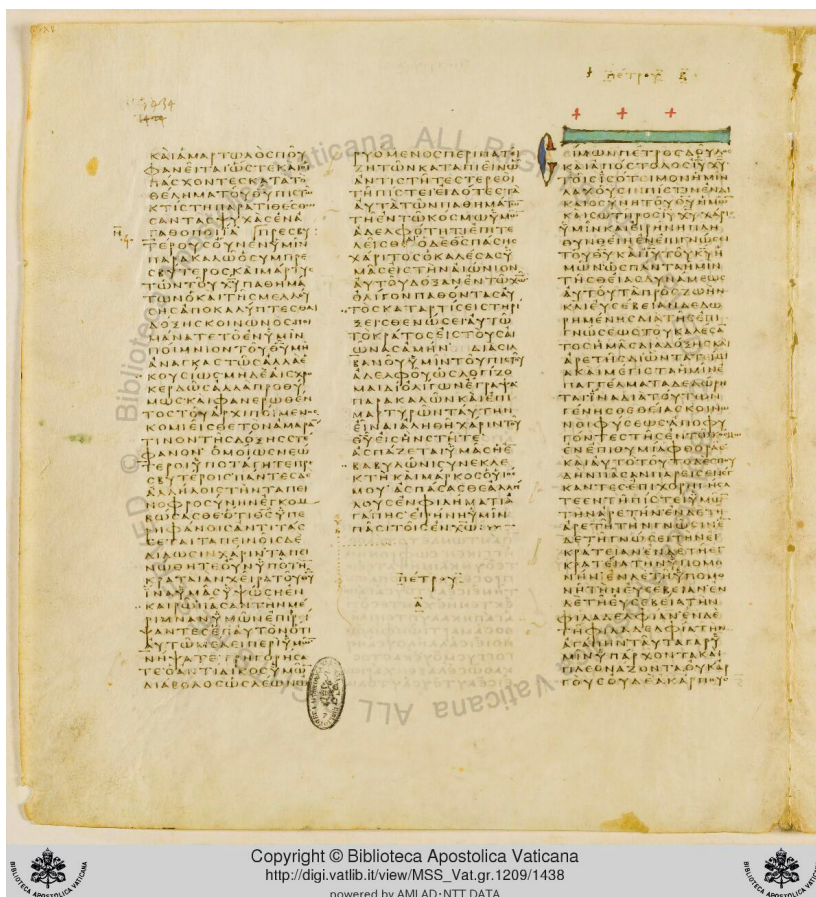 1434
ΠΕΤΡΟΥ Β
ΚΑΙΑΜΑΡΤΩΛΟΣΠΟΥ
ΦΑΝΕΙΤΑΙΩΣΤΕΚΑΙΟΙ
ΠΑΣΧΟΝΤΕΣΚΑΤΑΤΟ
ΘΕΛΗΜΑΤΟΥΘΥΠΙΣΤΩ
ΚΤΙΣΤΗΠΑΡΑΤΙΘΕΣΘΩ
ΣΑΝΤΑΣΨΥΧΑΣΕΝΑ
Η ΓΑΘΟΠΟΙΙΑ ΠΡΕΣΒΥ
ΤΕΡΟΥΣΟΥΝΕΝΥΜΙΝ
ΠΑΡΑΚΑΛΩΟΣΥΜΠΡΕ
ΣΒΥΤΕΡΟΣΚΑΙΜΑΡΤΥΣ
ΤΩΝΤΟΥΧΥΠΑΘΗΜΑ
ΤΩΝΟΚΑΙΤΗΣΜΕΛΛΟΥ
ΣΗΣΑΠΟΚΑΛΥΠΤΕΣΘΑΙ
ΔΟΞΗΣΚΟΙΝΩΝΟΣΠΟΙ
ΜΑΝΑΤΕΤΟΕΝΥΜΙΝ
ΠΟΙΜΝΙΟΝΤΟΥΘΥΜΗ
ΑΝΑΓΚΑΣΤΩΣΑΛΛΑΕ
ΚΟΥΣΙΩΣΜΗΔΕΑΙΣΧΡΟ
ΚΕΡΔΩΣΑΛΛΑΠΡΟΘΥ
ΜΩΣΚΑΙΦΑΝΕΡΩΘΕΝ
ΤΟΣΤΟΥΑΡΧΙΠΟΙΜΕΝΟΣ
ΚΟΜΙΕΙΣΘΕΤΟΝΑΜΑΡΑ
ΤΙΝΟΝΤΗΣΔΟΞΗΣΣΤΕ
ΦΑΝΟΝ ΟΜΟΙΩΣΝΕΩ
ΤΕΡΟΙΥΠΟΤΑΓΗΤΕΠΡΕ
ΣΒΥΤΕΡΟΙΣΠΑΝΤΕΣΔΕ
ΑΛΛΗΛΟΙΣΤΗΝΤΑΠΕΙ
ΝΟΦΡΟΣΥΝΗΝΕΓΚΟΜ
ΒΩΣΑΣΘΕΟΤΙΘΣΥΠΕ
ΡΗΦΑΝΟΙΣΑΝΤΙΤΑΣ
ΣΕΤΑΙΤΑΠΕΙΝΟΙΣΔΕ
ΔΙΔΩΣΙΝΧΑΡΙΝΤΑΠΕΙ
ΝΩΘΗΤΕΟΥΝΥΠΟΤΗ
ΚΡΑΤΑΙΑΝΧΕΙΡΑΤΟΥΘΥ
ΙΝΑΥΜΑΣΥΨΩΣΗΕΝ
ΚΑΙΡΩΠΑΣΑΝΤΗΝΜΕ
ΡΙΜΝΑΝΥΜΩΝΕΠΙΡΙ
ΨΑΝΤΕΣΕΠΑΥΤΟΝΟΤΙ
ΑΥΤΩΜΕΛΕΙΠΕΡΙΥΜΩ
ΝΗΨΑΤΕΓΡΗΓΟΡΗΣΑ
ΤΕΟΑΝΤΙΔΙΚΟΣΥΜΩ
ΔΙΑΒΟΛΟΣΩΣΛΕΩΝΩ
ΡΥΟΜΕΝΟΣΠΕΡΙΠΑΤΕΙ
ΖΗΤΩΝΚΑΤΑΠΙΕΙΝΩ
ΑΝΤΙΣΤΗΤΕΣΤΕΡΕΟΙ
ΤΗΠΙΣΤΕΙΕΙΔΟΤΕΣΤΑ
ΑΥΤΑΤΩΝΠΑΘΗΜΑΤΩ
ΤΗΕΝΤΩΚΟΣΜΩΥΜΩ
ΑΔΕΛΦΟΤΗΤΙΕΠΙΤΕ
ΛΕΙΣΘΕ ΟΔΕΘΣΠΑΣΗΣ
ΧΑΡΙΤΟΣΟΚΑΛΕΣΑΣΥ
ΜΑΣΕΙΣΤΗΝΑΙΩΝΙΟΝ
ΑΥΤΟΥΔΟΞΑΝΕΝΤΩΧΩ
ΟΛΙΓΟΝΠΑΘΟΝΤΑΣΑΥ
ΤΟΣΚΑΤΑΡΤΙΣΕΙΣΤΗΡΙ
ΞΕΙΣΘΕΝΩΣΕΙΑΥΤΩ
ΤΟΚΡΑΤΟΣΕΙΣΤΟΥΣΑΙ
ΩΝΑΣΑΜΗΝ ΔΙΑΣΙΛ
ΒΑΝΟΥΥΜΙΝΤΟΥΠΙΣΤΟΥ
ΑΔΕΛΦΟΥΩΣΛΟΓΙΖΟ
ΜΑΙΔΙΟΛΙΓΩΝΕΓΡΑΨΑ
ΠΑΡΑΚΑΛΩΝΚΑΙΕΠΙ
ΜΑΡΤΥΡΩΝΤΑΥΤΗΝ
ΕΙΝΑΙΑΛΗΘΗΧΑΡΙΝΤΟΥ
ΘΥΕΙΣΗΝΣΤΗΤΕ
ΑΣΠΑΖΕΤΑΙΥΜΑΣΗΕ
ΒΑΒΥΛΩΝΙΣΥΝΕΚΛΕ
ΚΤΗΚΑΙΜΑΡΚΟΣΟΥΙΟΣ
ΜΟΥ ΑΣΠΑΣΑΣΘΕΑΛΛΗ
ΛΟΥΣΕΝΦΙΛΗΜΑΤΙΑ
ΓΑΠΗΣ ΕΙΡΗΝΗΥΜΙΝ
ΠΑΣΙΤΟΙΣΕΝΧΩ
ΠΕΤΡΟΥ
Α
ΣΙΜΩΝΠΕΤΡΟΣΔΟΥΛΟΣ
ΚΑΙΑΠΟΣΤΟΛΟΣΙΥΧΥ
ΤΟΙΣΙΣΟΤΕΙΜΟΝΗΜΙΝ
ΛΑΧΟΥΣΙΝΠΙΣΤΙΝΕΝΔΙ
ΚΑΙΟΣΥΝΗΤΟΥΘΥΗΜΩ
ΚΑΙΣΩΤΗΡΟΣΙΥΧΥΧΑΡΙΣ
ΥΜΙΝΚΑΙΕΙΡΗΝΗΠΛΗ
ΘΥΝΘΕΙΗΕΝΕΠΙΓΝΩΣΕΙ
ΤΟΥΘΥΚΑΙΙΥΤΟΥΚΥΗ
ΜΩΝΩΣΠΑΝΤΑΗΜΙΝ
ΤΗΣΘΕΙΑΣΔΥΝΑΜΕΩΣ
ΑΥΤΟΥΤΑΠΡΟΣΖΩΗΝ
ΚΑΙΕΥΣΕΒΕΙΑΝΔΕΔΩ
ΡΗΜΕΝΗΣΔΙΑΤΗΣΕΠΙ
ΓΝΩΣΕΩΣΤΟΥΚΑΛΕΣΑ
ΤΟΣΗΜΑΣΔΙΑΔΟΞΗΣΚΑΙ
ΑΡΕΤΗΣΔΙΩΝΤΑΤΙΜΙ
ΑΚΑΙΜΕΓΙΣΤΑΗΜΙΝΕ
ΠΑΓΓΕΛΜΑΤΑΔΕΔΩΡΗ
ΤΑΙΙΝΑΔΙΑΤΟΥΤΩΝ
ΓΕΝΗΣΘΕΘΕΙΑΣΚΟΙΝΩ
ΝΟΙΦΥΣΕΩΣΑΠΟΦΥ
ΓΟΝΤΕΣΤΗΣΕΝΤΩΚΟΣΜΩ
ΕΝΕΠΙΘΥΜΙΑΦΘΟΡΑΣ
ΚΑΙΑΥΤΟΤΟΥΤΟΔΕΣΠΟΥ
ΔΗΝΠΑΣΑΝΠΑΡΕΙΣΕΝΕΓ
ΚΑΝΤΕΣΕΠΙΧΟΡΗΓΗΣΑ
ΤΕΕΝΤΗΠΙΣΤΕΙΥΜΩ
ΤΗΝΑΡΕΤΗΝΕΝΔΕΤΗ
ΑΡΕΤΗΤΗΝΓΝΩΣΙΝΕ
ΔΕΤΗΓΝΩΣΕΙΤΗΝΕΓ
ΚΡΑΤΕΙΑΝΕΝΔΕΤΗΕΓ
ΚΡΑΤΕΙΑΤΗΝΥΠΟΜΟ
ΝΗΝΕΝΔΕΤΗΥΠΟΜΟ
ΝΗΤΗΝΕΥΣΕΒΕΙΑΝΕΝ
ΔΕΤΗΕΥΣΕΒΕΙΑΤΗΝ
ΦΙΛΑΔΕΛΦΙΑΝΕΝΔΕ
ΤΗΦΙΛΑΔΕΛΦΙΑΤΗΝ
ΑΓΑΠΗΝΤΑΥΤΑΓΑΡΥ
ΜΙΝΥΠΑΡΧΟΝΤΑΚΑΙ
ΠΛΕΟΝΑΖΟΝΤΑΟΥΚΑΡ
ΓΟΥΣΟΥΔΕΑΚΑΡΠΟΥΣ
Copyright © Biblioteca Apostolica Vaticana
http://digi.vatlib.it/view/MSS_Vat.gr.1209/1438
powered by AMLAD·NTT DATA